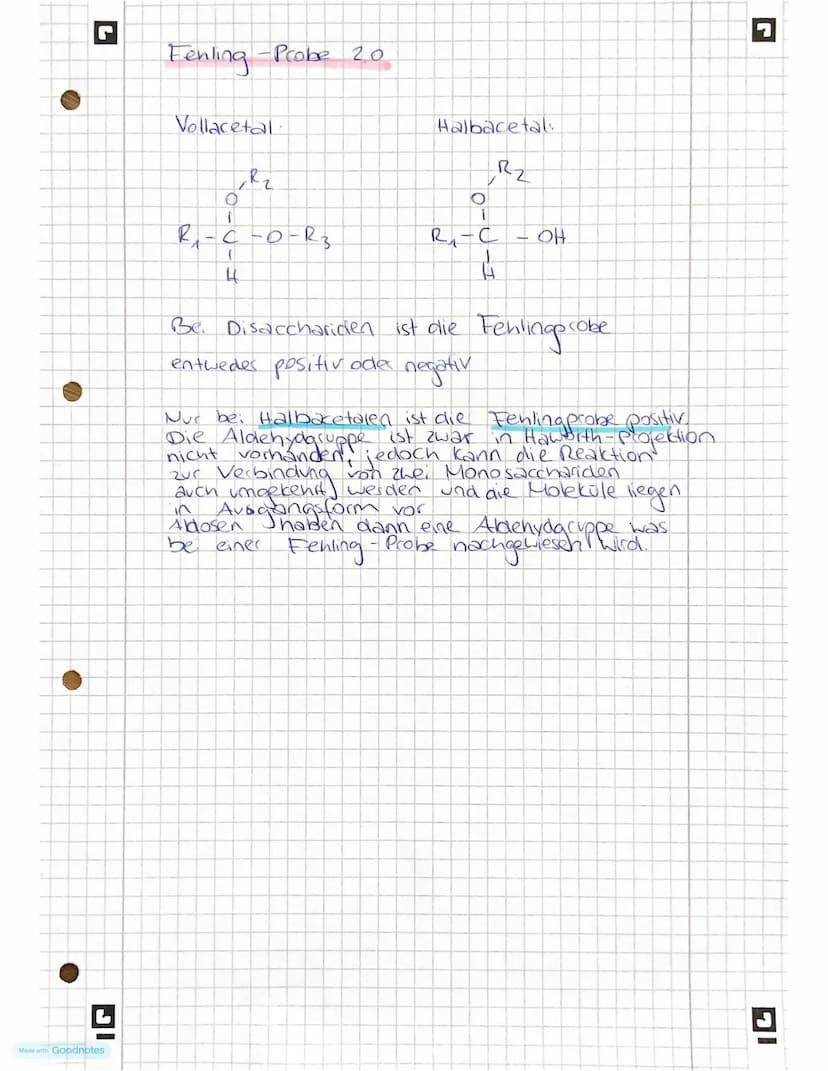 Fenling-Probe 2.0
Vollacetal:
Halbacetal:
R2
O
R1-C-O-R3
H
R2
O
R1-C-OH
H
Bei Disacchariden ist die Fehlingprobe
entweder positiv oder negativ
Nur bei Halbacetalen ist die Fehlingprobe positiv.
Die Aldehydgruppe ist zwar in Haworth-Projektion
nicht vorhanden, jedoch kann die Reaktion
zur Verbindung von zwei Monosacchariden
auch umgekehrt werden und die Moleküle liegen
in Ausgangsform vor
Aldosen haben dann eine Aldehydgruppe was
bei einer Fehling-Probe nachgewiesen wird.
Made with Goodnotes